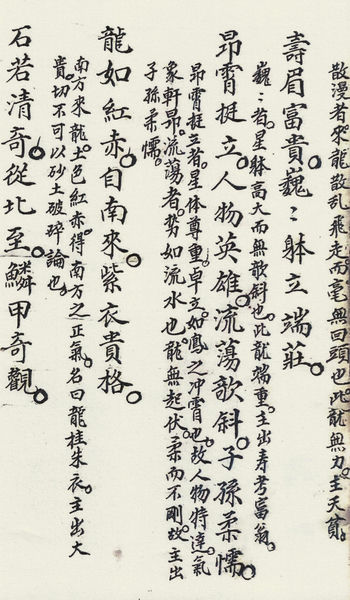 散漫者來龍散乱飛走而毫無回頭也此龍無力主夭貧
壽眉富貴巍〻躰立端莊
巍〻者星躰高大而無欹斜也此龍端重主出寿考富翁
昂霄挺立人物英雄流蕩欹斜子孫柔懦
昂霄挺立者星体尊重卓立如鳳之冲霄也故人物特達氣
象軒昂流荡者势如流水也龍無起伏柔而不剛故主出
子孫柔懦
龍如紅赤自南來紫衣貴格
南方來龍土色紅赤得南方之正氣名曰龍挂朱衣主出大
貴切不可以砂土破碎論也
石若清奇從北至鱗甲奇觀